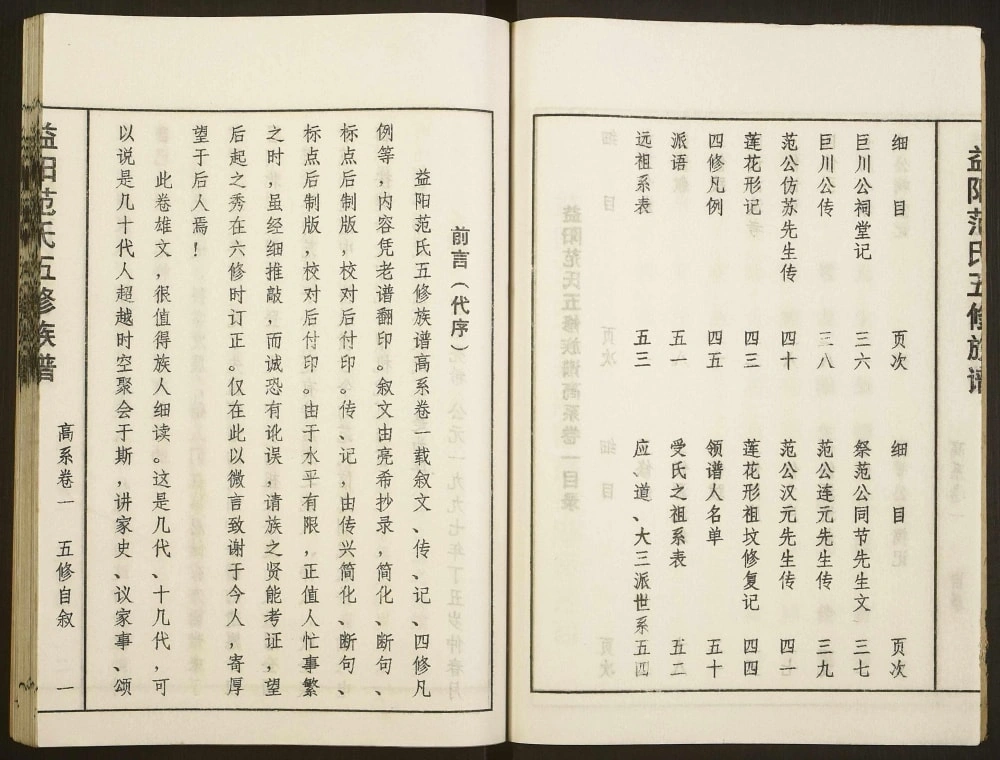 益阳范氏五修族谱
细目 页次 细目 页次
巨川公祠堂记 三六 祭范公同节先生文 三七
巨川公传 三八 范公连元先生传 三九
范公仿苏先生传 四十 范公汉元先生传 四一
莲花形记 四三 莲花形祖坟修复记 四四
四修凡例 四五 领谱人名单 五十
派语 五一 受氏之祖系表 五二
远祖系表 五三 应、道、大三派世系 五四
前言（代序）
益阳范氏五修族谱高系卷一载叙文、传、记、四修凡
例等，内容凭老谱翻印。叙文由亮希抄录，简化、断句、
标点后制版，校对后付印。传、记，由传兴简化、断句、
标点后制版，校对后付印。由于水平有限，正值人忙事繁
之时，虽经细推敲，而诚恐有讹误，请族之贤能考证，望
后起之秀在六修时订正。仅在此以微言致谢于今人，寄厚
望于后人焉！
此卷雄文，很值得族人细读。这是几代、十几代，可
以说是几十代人超越时空聚会于斯，讲家史、议家事、颂
益阳范氏五修族谱
高系卷一 五修自叙 一